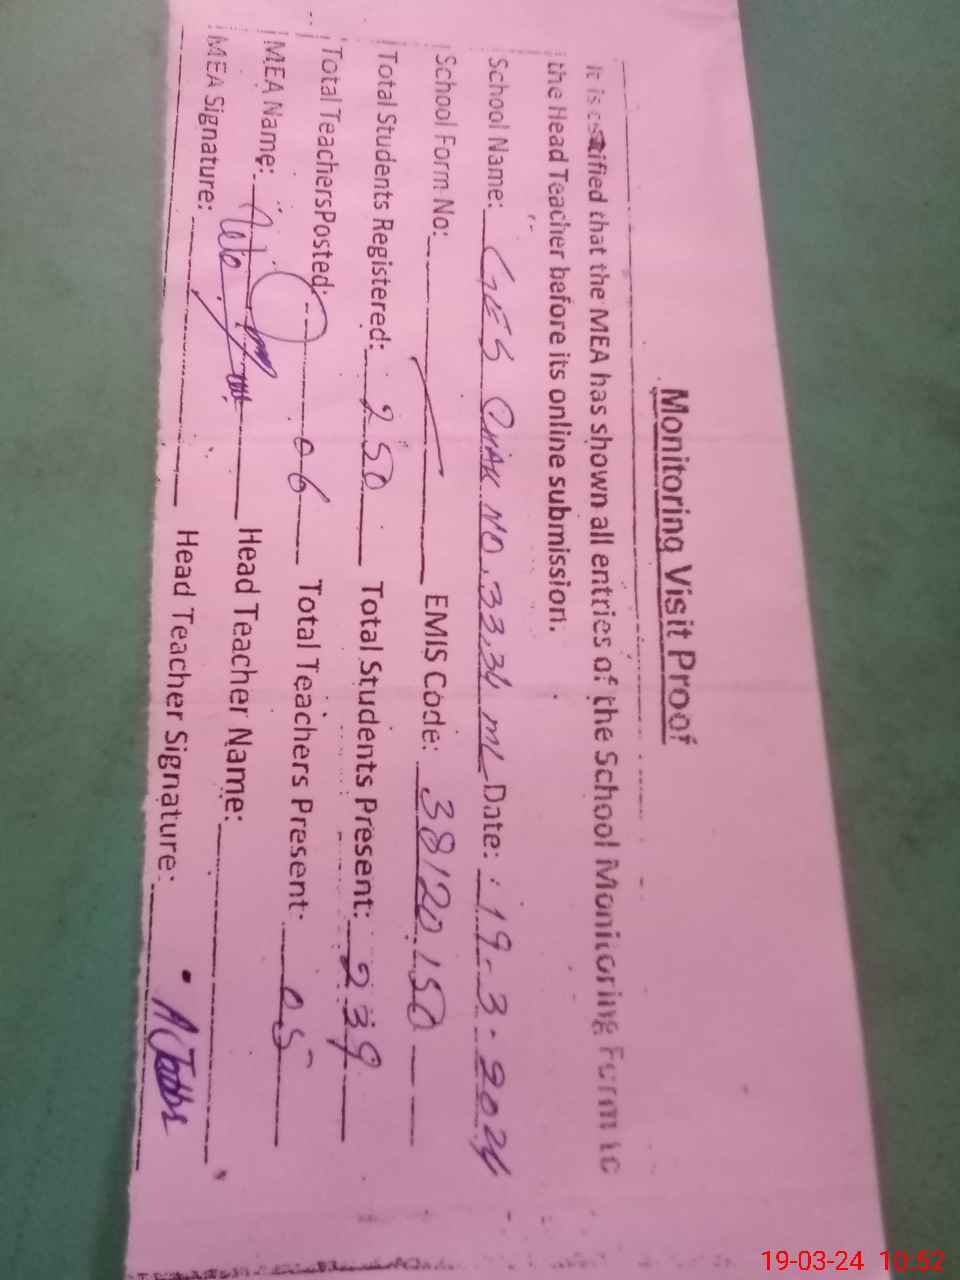 Monitoring Visit Proof
It is certified that the MEA has shown all entries of the School Monitoring Form to
the Head Teacher before its online submission.
School Name: GES CHAK NO. 33,34 ML Date: 19-3-2024
School Form No: EMIS Code: 38120150
Total Students Registered: 250 Total Students Present: 239
Total TeachersPosted: 06 Total Teachers Present: 05
MEA Name: Head Teacher Name:
MEA Signature: Head Teacher Signature:
19-03-24 10:52